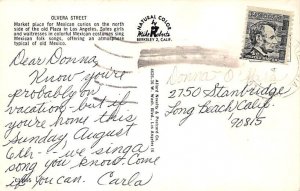 OLVERA STREET
Market place for Mexican curios on the north
side of the old Plaza in Los Angeles. Sales girls
and waitresses in colorful Mexican costumes sing
Mexican folk songs, offering an atmosphere
typical of old Mexico.
NATURAL COLOR
Mike Roberts
BERKELEY 2, CALIF.
Dear Donna,
Know you're
probably on
vacation - but if
you're home this
Sunday August
6th - we sing a
song you know. Come
if you can. Carla
Donna
2750 Stanbridge
Long Beach Calif.
90815